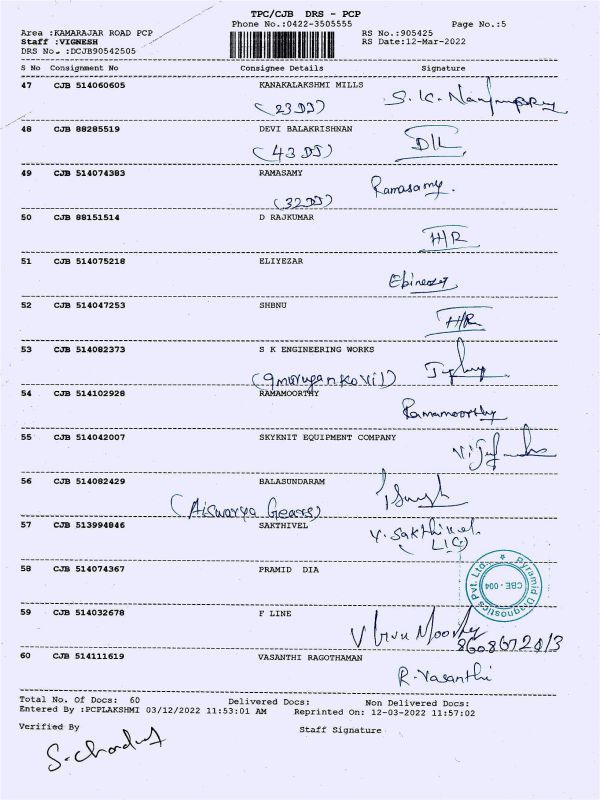 TPC/CJB DRS - PCP
Phone No.:0422-3505555 Page No.:5
Area :KAMARAJAR ROAD PCP RS No.:905425
Staff :VIGNESH RS Date:12-Mar-2022
DRS No. :DCJB90542505
S No Consignment No Consignee Details Signature
47 CJB 514060605 KANAKALAKSHMI MILLS
(23DJ) S.K.
48 CJB 88285519 DEVI BALAKRISHNAN
(43DJ) D/L
49 CJB 514074383 RAMASAMY
(32DJ) Ramasamy.
50 CJB 88151514 D RAJKUMAR
H/R
51 CJB 514075218 ELIYEZAR
Ebinezer
52 CJB 514047253 SHBNU
H/R
53 CJB 514082373 S K ENGINEERING WORKS
54 CJB 514102928 RAMAMOORTHY
Ramamoorthy
55 CJB 514042007 SKYKNIT EQUIPMENT COMPANY
56 CJB 514082429 BALASUNDARAM
(Aiswarya Gears)
57 CJB 513994846 SAKTHIVEL
Y. Sakthivel.
58 CJB 514074367 PRAMID DIA
Pyramid Diagnostics Pvt. Ltd.
CBE - 004
59 CJB 514032678 F LINE
Moorthy
60 CJB 514111619 VASANTHI RAGOTHAMAN
R. Vasanthi
Total No. Of Docs: 60 Delivered Docs: Non Delivered Docs:
Entered By :PCPLAKSHMI 03/12/2022 11:53:01 AM Reprinted On: 12-03-2022 11:57:02
Verified By Staff Signature